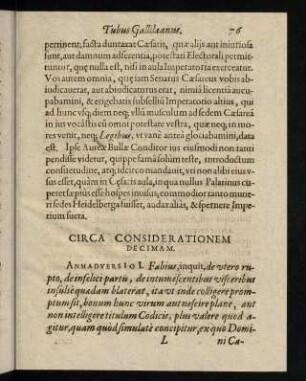 Tubus Gallilæanus. 76
pertinent, facta duntaxat Cæsaris, quæ alijs aut iniuriosa
sunt, aut damnum adferentia, potestati Electorali permit-
tuntur, quę nulla est, nisi in aula Imperatoria exerceatur.
Vos autem omnia, quę iam Senatus Cæsareus vobis ab-
iudicauerat, aut abiudicaturus erat, nimiâ licentiâ aucu-
pabamini, & erigebatis subselliũ Imperatorio altius, qui
ad hunc vsq; diem neq; vllũ mulctum ad sedem Cæsarea
in ius vocâstis eũ omni potestate vestra, quæ neq; in mo-
res venit, neq; Legibus, vt vanè antea gloriabamini, data
est. Ipse Aureæ Bullæ Conditor ius eiusmodi non tanti
pendisse videtur, quippe famâ solùm teste, introductum
consuetudine, atq; idcirco mandauit, vti non alibi eius v-
sus esset, quàm in Cęsaris aula, in qua nullus Palatinus cu-
peret sæpius esse hospes inuisus, commodior tanto mune-
ri sedes Heidelberga fuisset, auda alias, & spernere Impe-
rium sueta.
CIRCA CONSIDERATIONEM
DECIMAM.
ANIMADVERSIO I. Fabius, inquit, de vtero ru-
pto, de infelici partu, de intumescentibus visceribus
insulse quædam blaterat, ita vt inde colligere prom-
ptum sit, bonum hunc virum aut nescire planè, aut
non intelligere titulum Codicis, plus valere quod a-
gitur, quam quod simulatè concipitur, ex quo Domi-
L ni Ca-